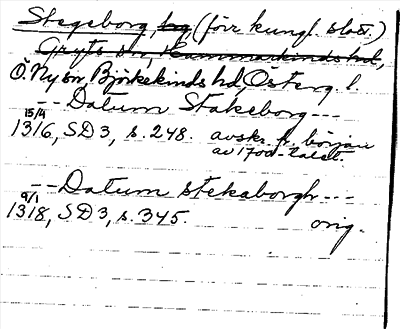 Stegeborg kg (förr kungl. slott.)
Gryts sn, Hammarkinds hd,
Ö. Ny sn Björkekinds hd, Österg. l.
-- Datum Stakeborg ---
15/4
1316, SD 3, s. 248. avskr. fr. början
av 1700-talet.
-- Datum stekaborgh ---
9/1
1318, SD 3, s. 345. orig.